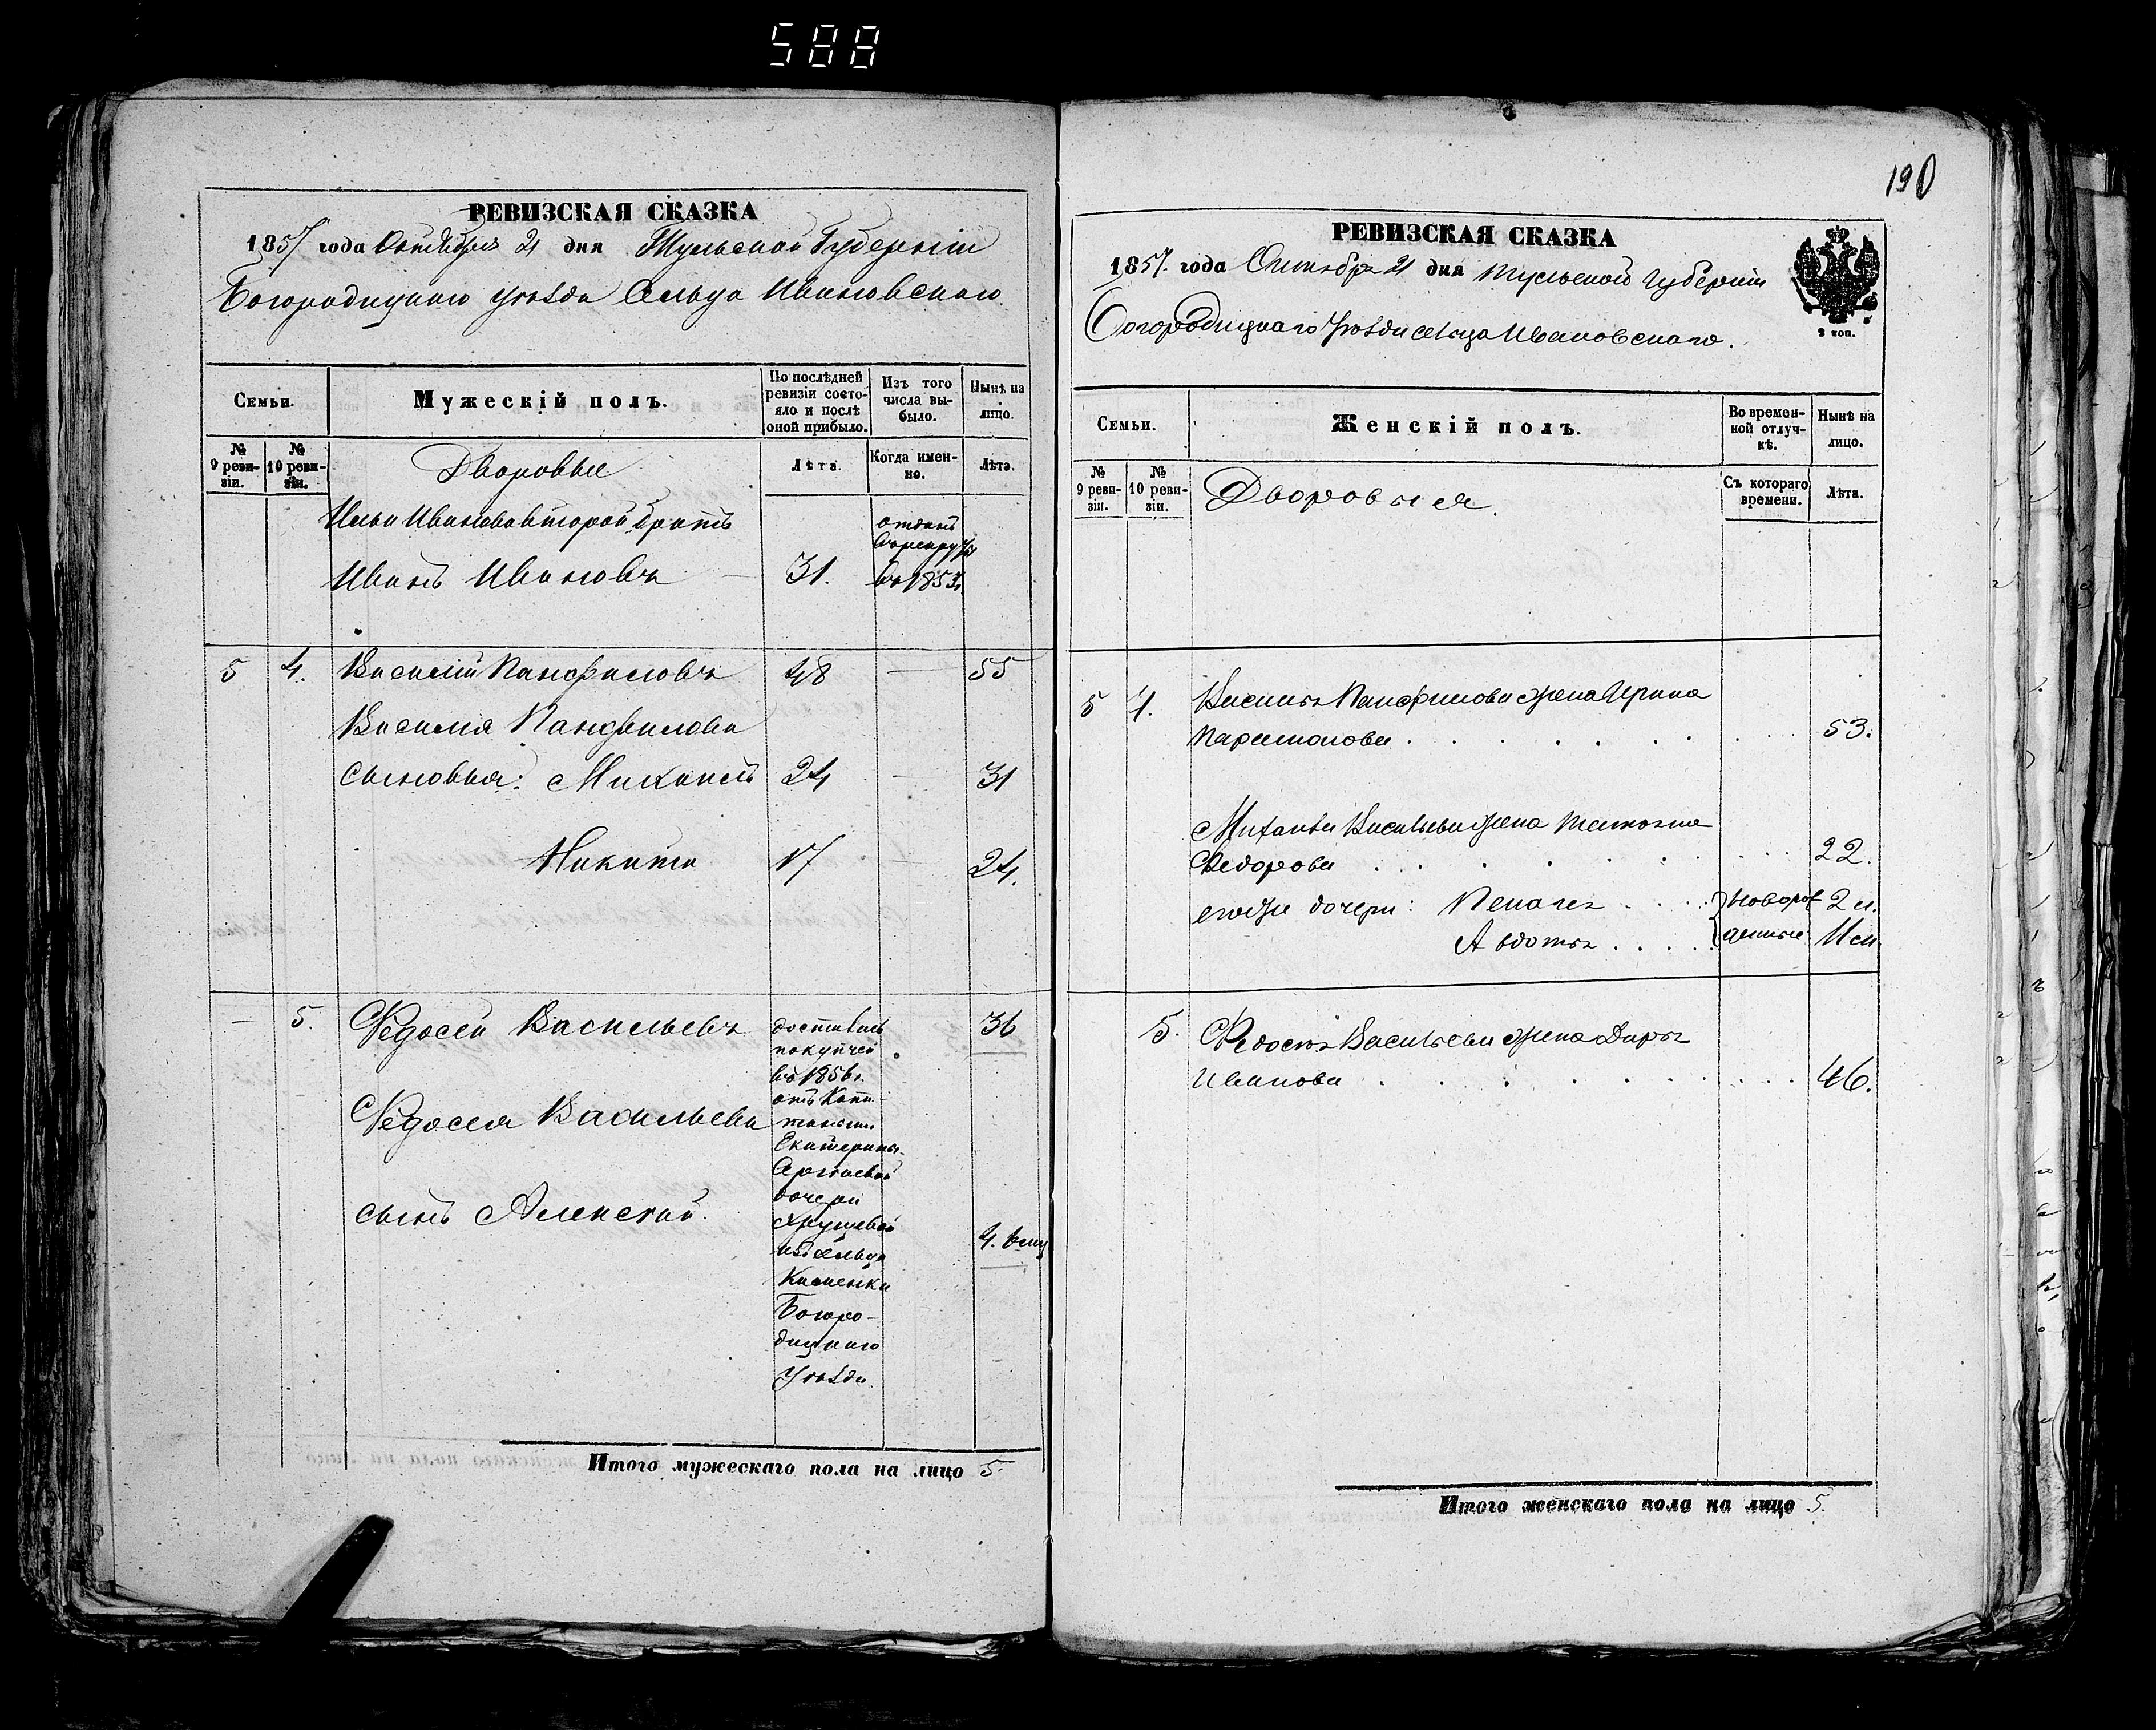 588
190
РЕВИЗСКАЯ СКАЗКА
1857 года Октября 21 дня Тульской Губернiи
Богородицкаго уѣзда Сельца Ивановскаго.
Семьи.
Мужескiй полъ.
По послѣдней ревизiи состояло и послѣ оной прибыло.
Изъ того числа выбыло.
Нынѣ на лицо.
№ 9 ревизiи.
№ 10 ревизiи.
Дворовые
Лѣта.
Когда именно.
Лѣта.
Ильи Иванова второй братъ
Иванъ Ивановъ 31. отданъ в рекруты въ 1853г.
5 4. Василiй Панфиловъ 48 — 55
Василiя Панфилова
сыновья: Михаилъ 24 — 31
Никита 17 — 24.
— 5. Федосей Васильевъ 36
достались
покупкой
въ 1856г.
отъ Капи-
танши
Екатерины
Сергѣевой
дочери
Хрущевой
изъ сельца
Каменки
Богоро-
дицкаго
Уѣзда.
Федосея Васильева
сынъ Алексѣй. 4.
Итого мужескаго пола на лицо 5.
РЕВИЗСКАЯ СКАЗКА
1857. года Октября 21 дня Тульской Губернiи
Богородицкаго Уѣзда сельца Ивановскаго.
3 коп.
Семьи.
Женскiй полъ.
Во временной отлучкѣ.
Нынѣ на лицо.
№ 9 ревизiи.
№ 10 ревизiи.
Дворовыя.
Съ котораго времени.
Лѣта.
5 4. Василья Панфилова жена Ирина
Парамонова . . . . . . . . 53.
Михаила Васильева жена Татьяна
Федорова . . . . . . . . 22.
егоже дочери: Пелагея . . . . новорож- 2 л.
Авдотья . . . . денные 11 м.
5. Федосѣя Васильева жена Дарья
Иванова . . . . . . . . 46.
Итого женскаго пола на лицо 5.